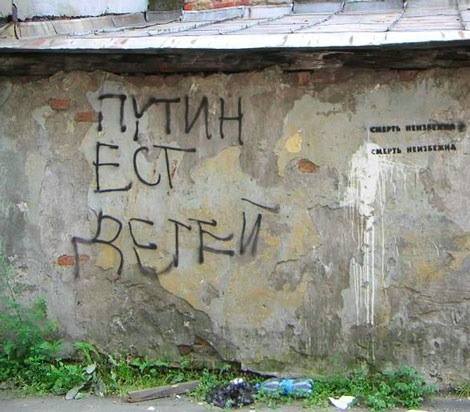 ПУТИН
ЕСТ
ДЕТЕЙ
СМЕРТЬ НЕИЗБЕЖНА
СМЕРТЬ НЕИЗБЕЖНА